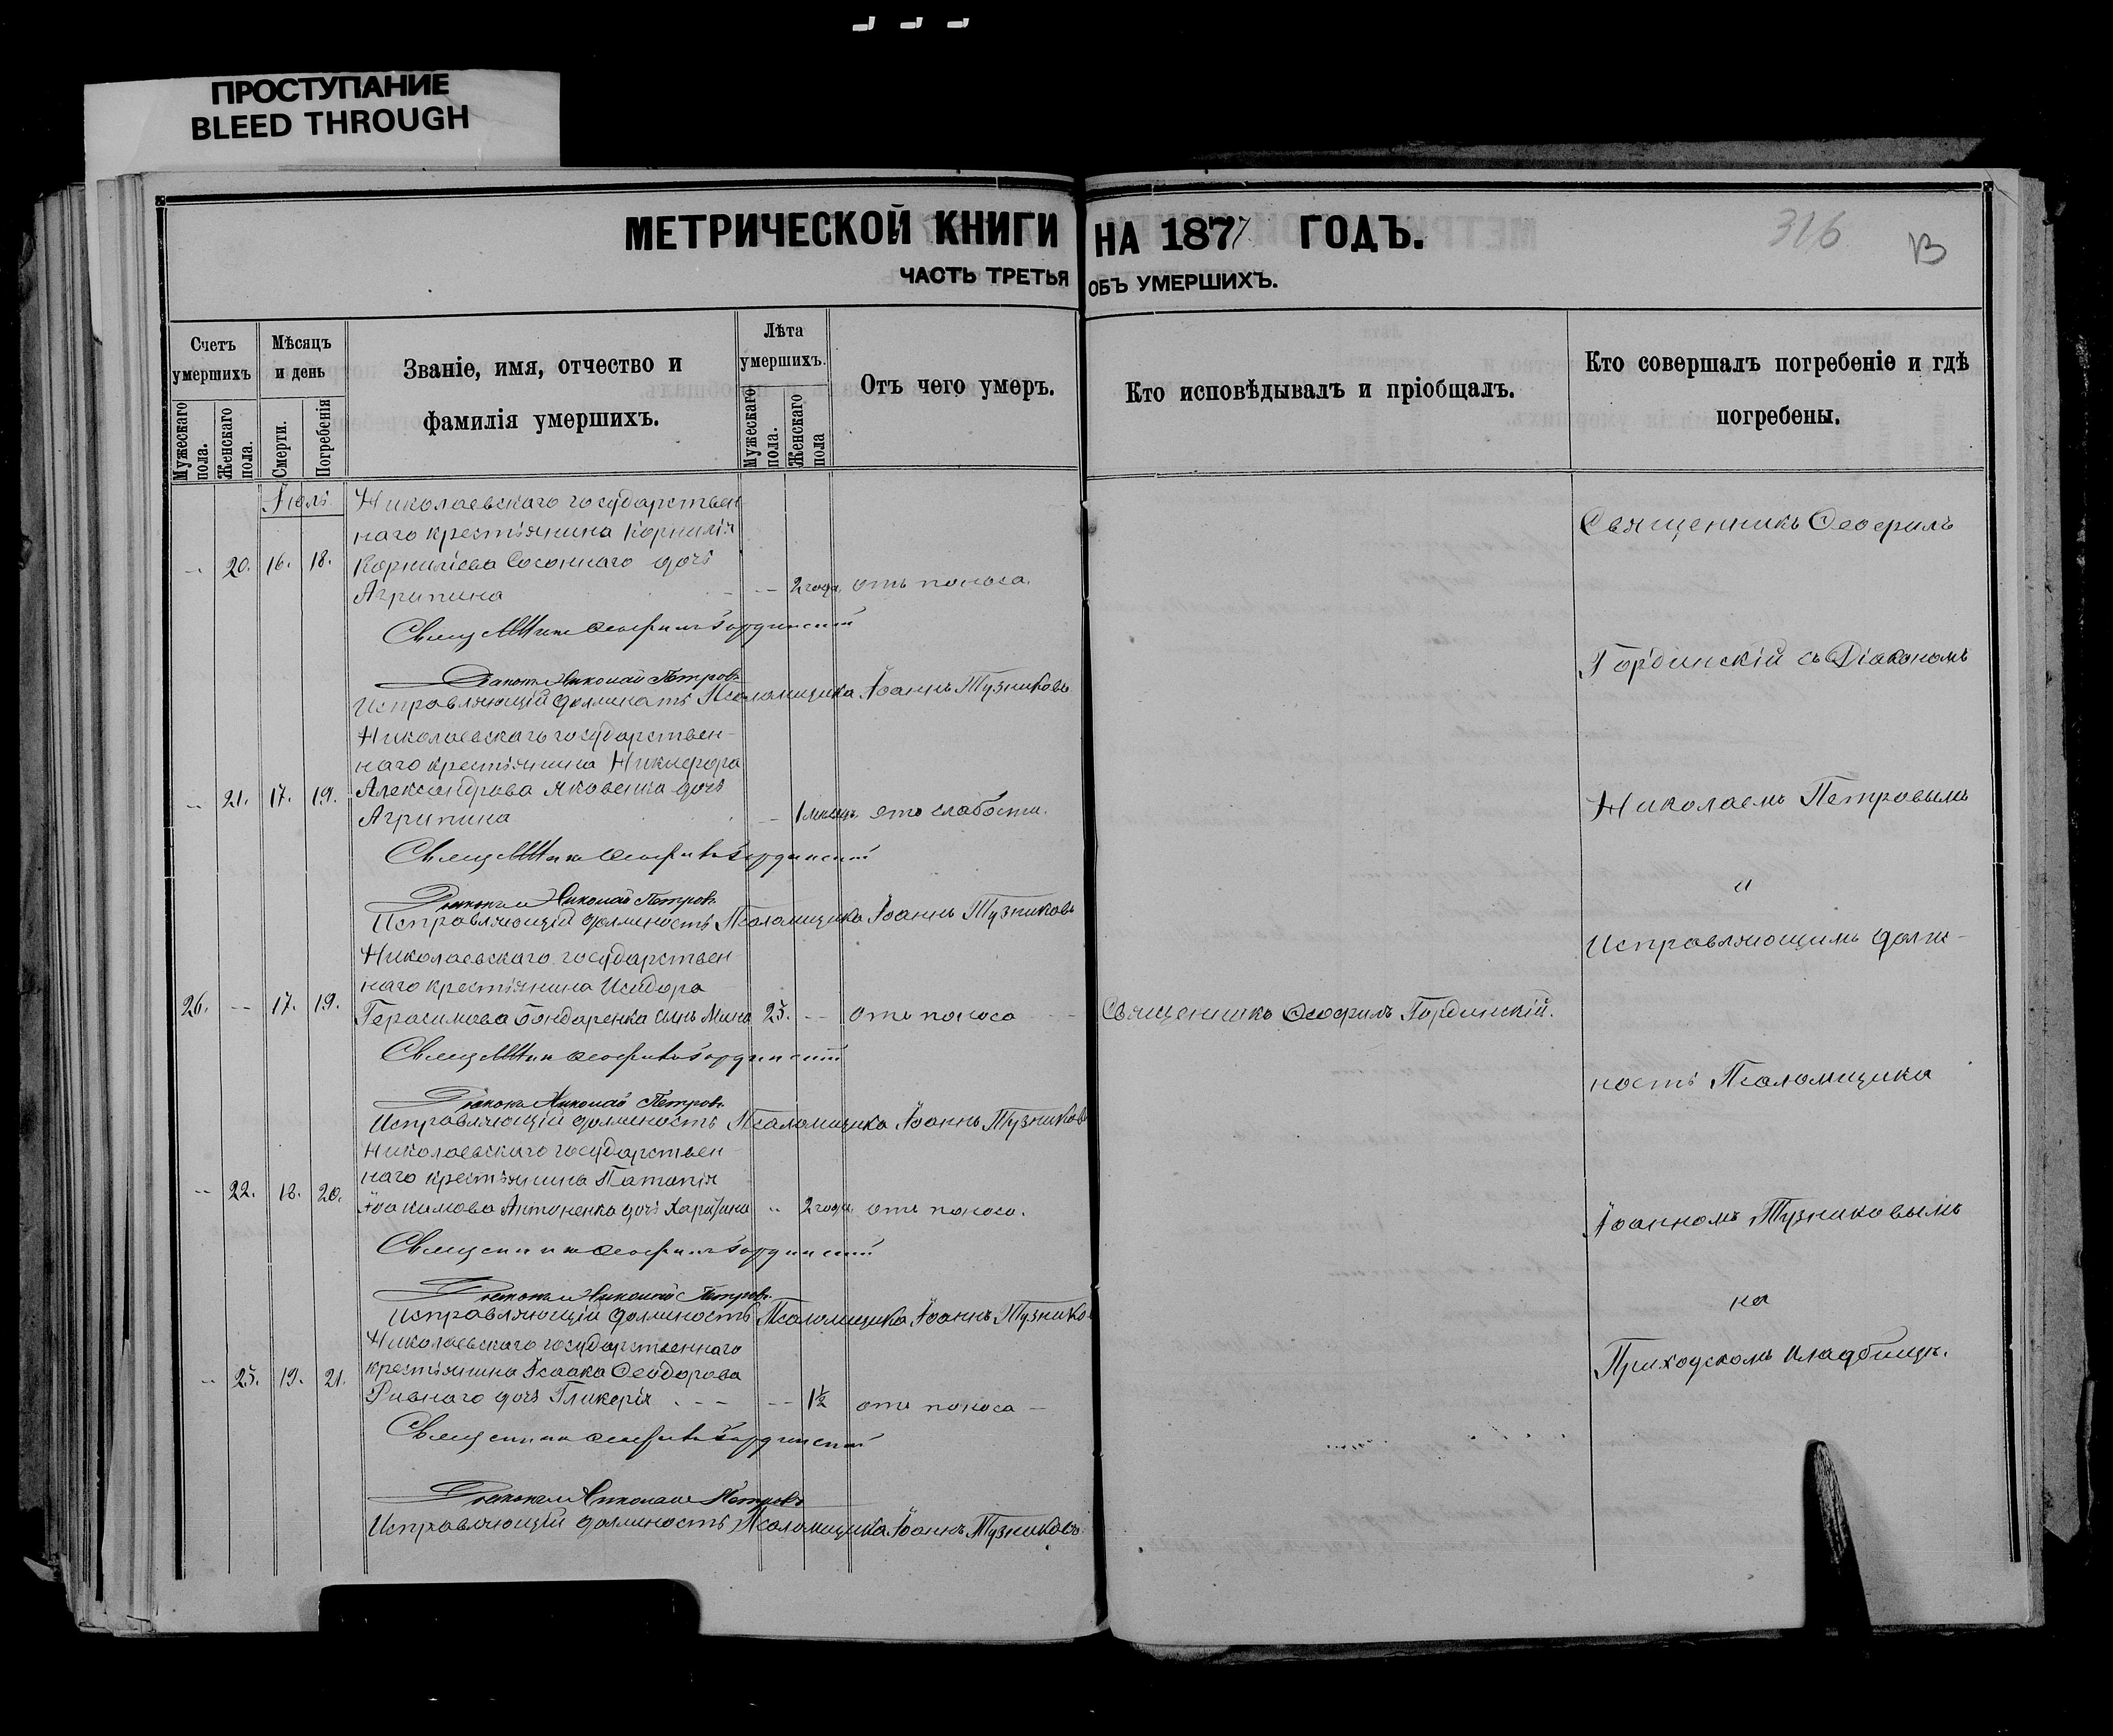 ПРОСТУПАНИЕ
BLEED THROUGH
МЕТРИЧЕСКОЙ КНИГИ НА 1877 ГОДЪ.
316
ЧАСТЬ ТРЕТЬЯ ОБЪ УМЕРШИХЪ.
Счетъ умершихъ
Мужескаго пола.
Женскаго пола.
Мѣсяцъ и день
Смерти.
Погребенія
Званіе, имя, отчество и
фамилія умершихъ.
Лѣта умершихъ.
Мужескаго пола.
Женскаго пола
Отъ чего умеръ.
Кто исповѣдывалъ и пріобщалъ.
Кто совершалъ погребеніе и гдѣ
погребены.
Іюль
Николаевскаго государствен
наго крестьянина Корнилія
20. 16. 18. Корниліева Сосоннаго дочь
Агрипина 2 года отъ поноса.
Священникъ Ѳеофилъ Гординскій
Діаконъ Николай Петровъ
Исправляющій должность Псаломщика Іоаннъ Тузниковъ
Николаевскаго государствен-
наго крестьянина Никифора
21. 17. 19. Александрова Яковенка дочь
Агрипина 1 мѣсяцъ отъ слабости.
Священникъ Ѳеофилъ Гординскій
Діаконъ Николай Петровъ
Исправляющій должность Псаломщика Іоаннъ Тузниковъ
Николаевскаго государствен
наго крестьянина Исидора
26. -- 17. 19. Герасимова Бондаренка сынъ Мина 25. -- отъ поноса Священникъ Ѳеофилъ Гординскій.
Священникъ Ѳеофилъ Гординскій
Діаконъ Николай Петровъ
Исправляющій должность Псаломщика Іоаннъ Тузников
Николаевскаго государствен
наго крестьянина Патапія
22. 18. 20. Іоакимова Антоненка дочь Харитина 2 года отъ поноса.
Священникъ Ѳеофилъ Гординскій
Діаконъ Николай Петровъ
Исправляющій должность Псаломщика Іоаннъ Тузнико
Николаевскаго государственнаго
крестьянина Ісаака Ѳеодорова
23. 19. 21. Ривнаго дочь Гликерія 1½ отъ поноса
Священникъ Ѳеофилъ Гординскій
Діаконъ Николай Петровъ
Исправляющій должность Псаломщика Іоаннъ Тузниковъ
Священникъ Ѳеофилъ
Гординскій съ Діакономъ
Николаемъ Петровымъ
и
Исправляющимъ долж-
ность Псаломщика
Іоанномъ Тузниковымъ
на
Приходскомъ кладбищѣ.